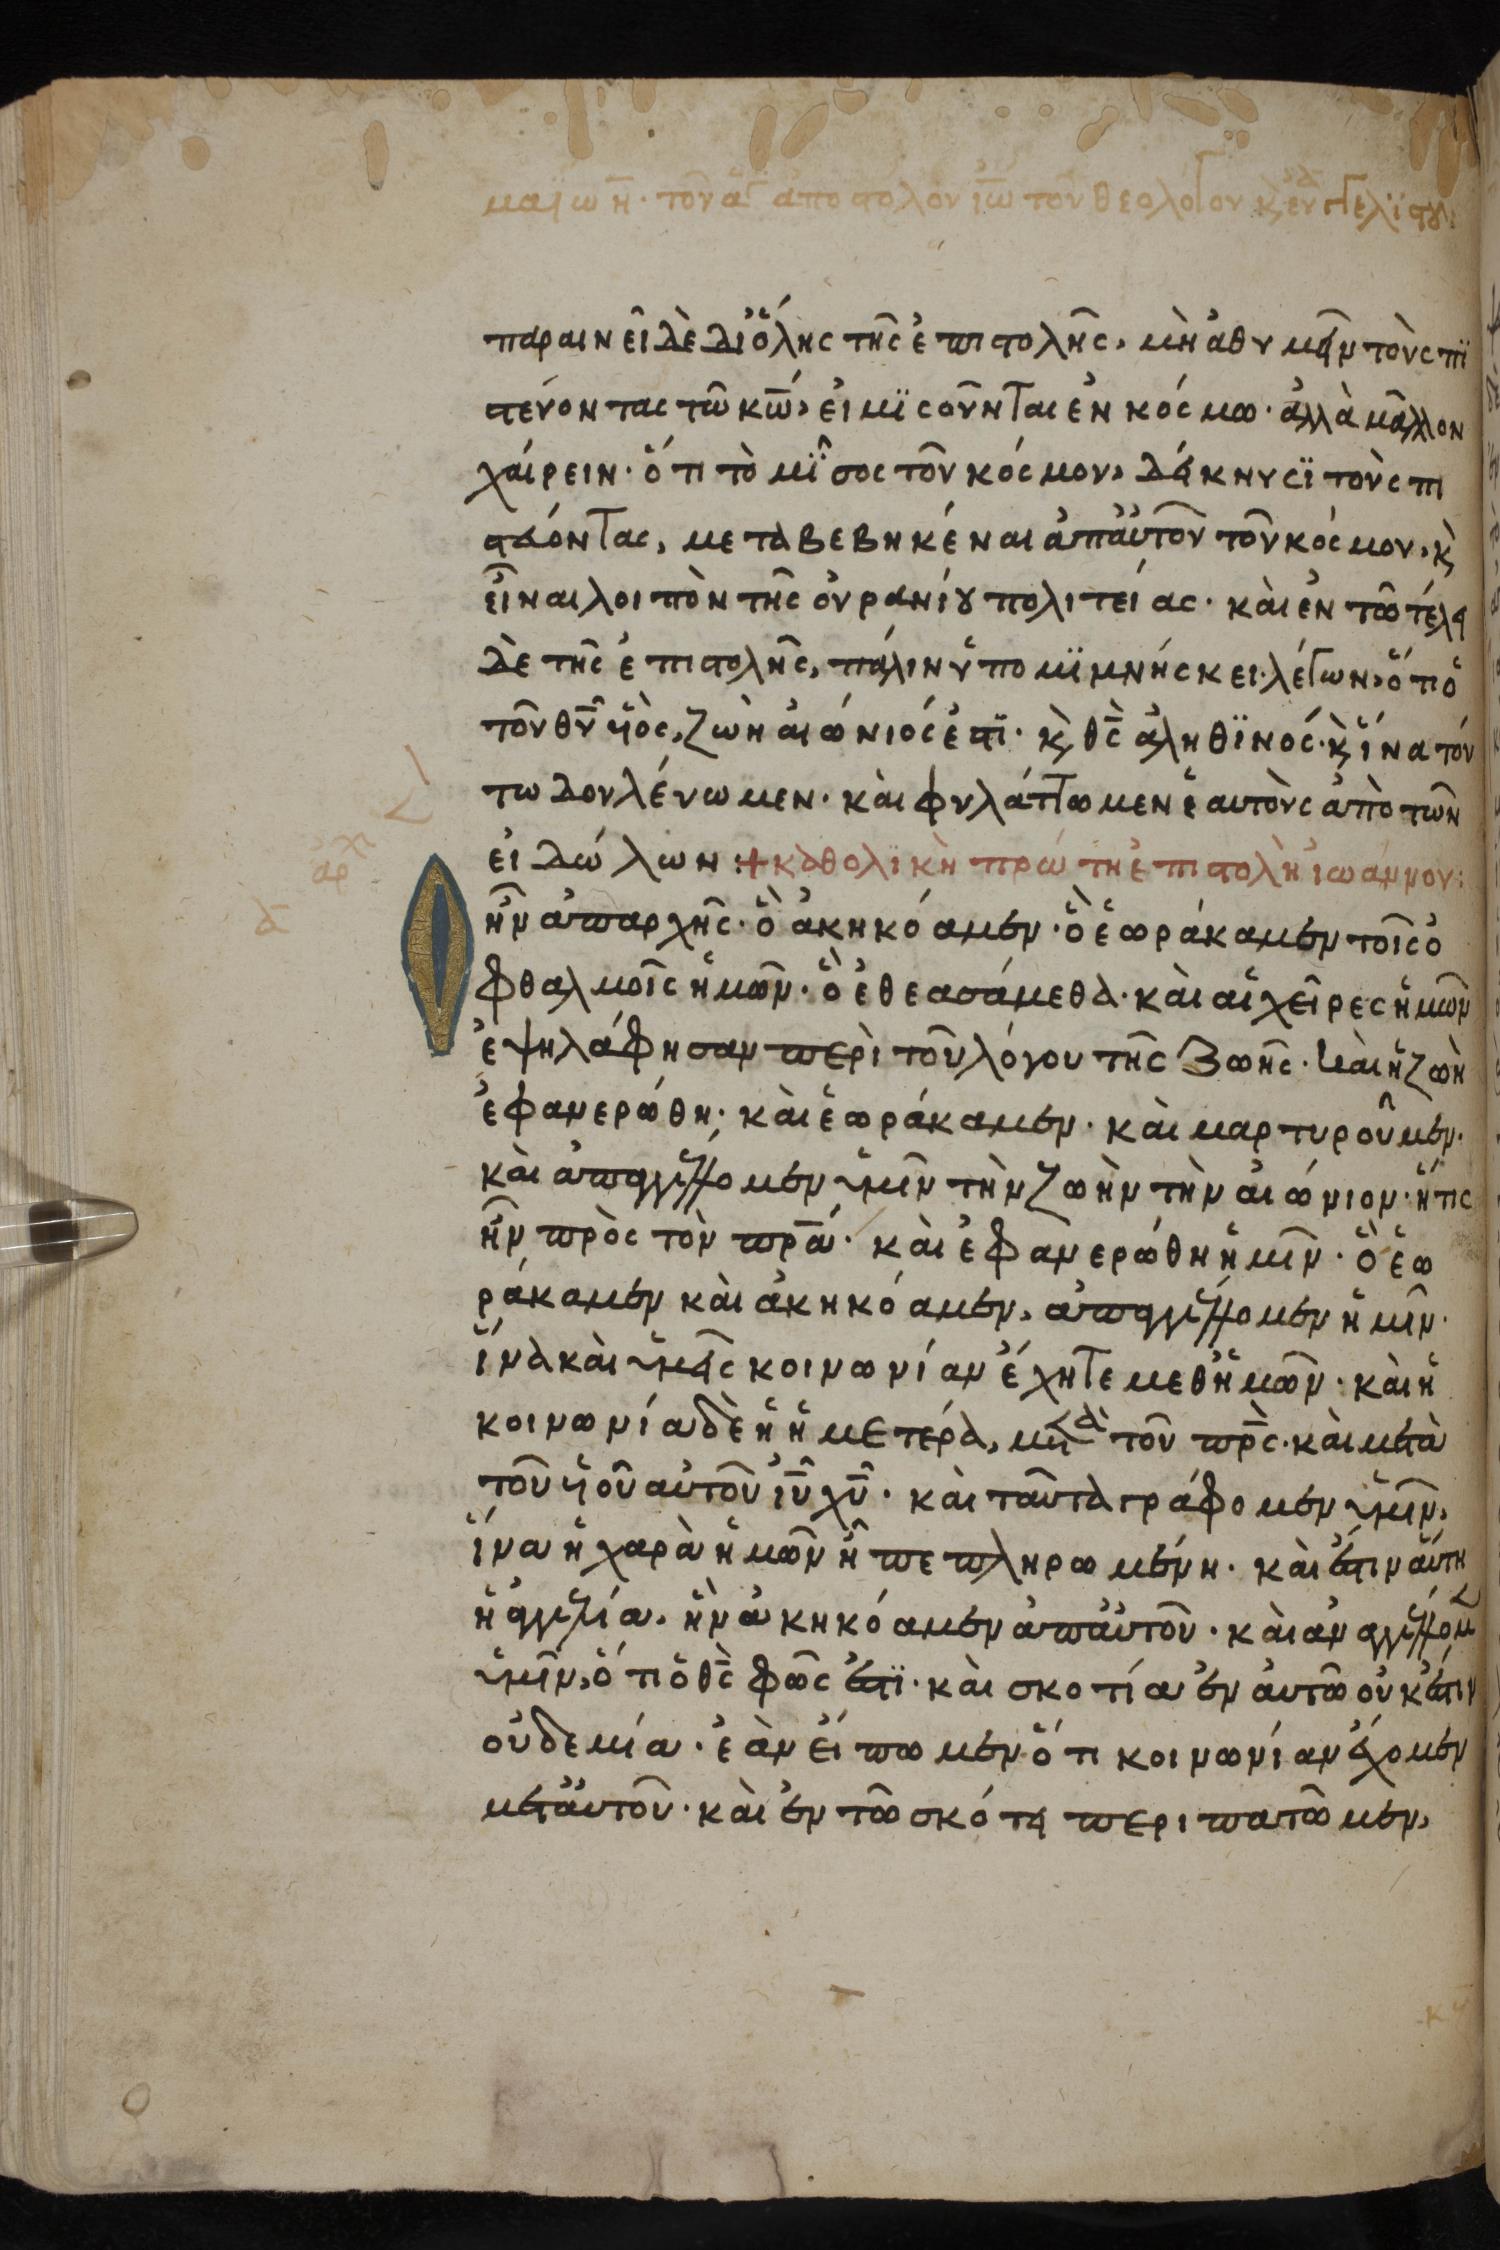 μαΐω η̄· τοῦ ἁγ ἀποστόλου ἰω̄ τοῦ θεολόγου κ̀ εὐαγγελιστοῦ:
παραινεῖ δὲ δι ὅλης τῆς ἐπιστολῆς, μὴ ἀθυμεῖν τοὺς πϊ
στεύοντας τῶ κω̄, εἰ μϊσοῦνται ἐν κόσμω· ἀλλὰ μᾶλλον
χαίρειν· ὅτι τὸ μῖσος τοῦ κόσμου, δείκνυσϊ τοὺς πι
στεύοντας, μεταβεβηκέναι ἀπ αὐτοῦ τοῦ κόσμου, κ̀
εἶναι λοιπὸν τῆς οὐρανίου πολιτείας· καὶ ἐν τῶ τέλει
δὲ τῆς ἐπιστολῆς, πάλιν ὑπομϊμνήσκει λέγων, ὅτι ὁ
τοῦ θῡ υἱὸς, ζωὴ αἰώνιός ἐστϊ· κ̀ θς̄ ἀληθϊνός· κ̀ ἵνα τού
τω δουλεύωμεν· καὶ φυλάττωμεν ἑαυτοὺς ἀπὸ τῶν
εἰδώλων :+ καθολϊκὴ πρώτη ἐπιστολὴ ἰωάννου:
ἀρχ
Ὃ
ἦν ἀπαρχῆς· ὃ ἀκηκόαμεν· ὃ ἑωράκαμεν τοῖς ὀ
φθαλμοῖς ἡμῶν· ὃ ἐθεασάμεθα· καὶ αἱ χεῖρες ἡμῶν
ἐψηλάφησαν περὶ τοῦ λόγου τῆς ζωῆς· καὶ ἡ ζωὴ
ἐφανερώθη· καὶ ἑωράκαμεν· καὶ μαρτυροῦμεν·
καὶ ἀπαγγέλλομεν ὑμῖν τὴν ζωὴν τὴν αἰώνιον· ἥτις
ἦν πρὸς τὸν πρ̄α· καὶ ἐφανερώθη ἡμῖν· ὃ ἑω
ράκαμεν καὶ ἀκηκόαμεν, ἀπαγγέλλομεν ἡμῖν·
ἵνα καὶ ὑμεῖς κοινωνίαν ἔχητε μεθ ἡμῶν· καὶ ἡ
κοινωνία δὲ ἡ ἡμετέρα, μετὰ τοῦ πρ̄ς· καὶ μετὰ
τοῦ υἱοῦ αὐτοῦ ἰῡ χῡ· καὶ ταῦτα γράφομεν ὑμῖν,
ἵνα ἡ χαρὰ ἡμῶν ἦ πεπληρωμένη· καὶ ἔστιν αὕτη
ἡ ἀγγελία. ἣν ἀκηκόαμεν ἀπ αὐτοῦ· καὶ ἀναγγέλλομεν
ὑμῖν, ὅτι ὁ θς̄ φῶς ἐστϊ· καὶ σκοτία ἐν αὐτῶ οὐκ ἔστιν
οὐδεμία· ἐὰν εἴπωμεν ὅτι κοινωνίαν ἔχομεν
μετ αὐτοῦ· καὶ ἐν τῶ σκότει περιπατῶμεν,